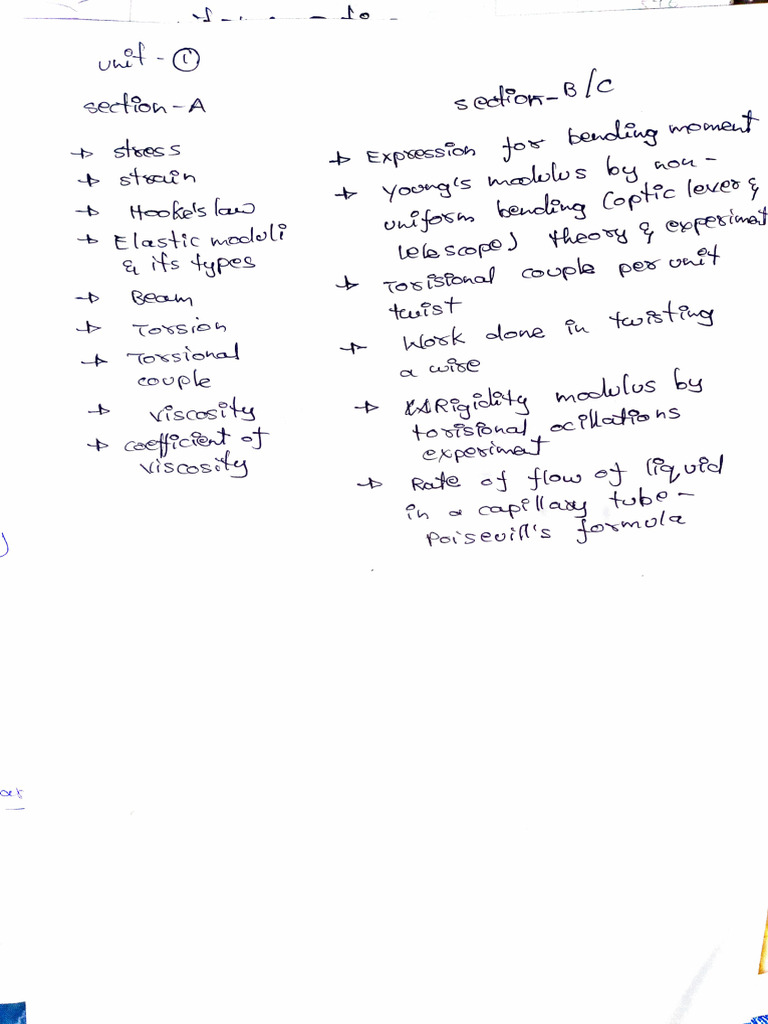 unit - ①
section - A
→ stress
→ strain
→ Hooke's law
→ Elastic moduli
& its types
→ Beam
→ Torsion
→ Torsional
couple
→ viscosity
→ coefficient of
viscosity
section - B/C
→ Expression for bending moment
→ Young's modulus by non -
uniform bending (optic lever &
telescope) theory & experiment
→ Torisional couple per unit
twist
→ Work done in twisting
a wire
→ Rigidity modulus by
torisional ocillations
experiment
→ Rate of flow of liquid
in a capillary tube -
Poisevill's formula